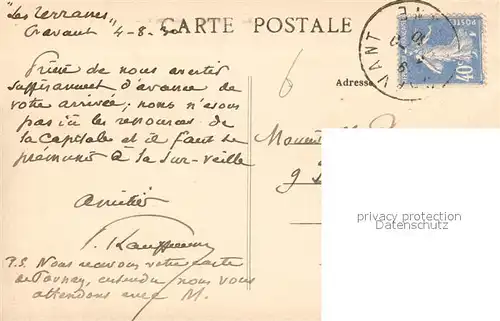 "Les Terrasses"
Cravant 4-8-30
CARTE POSTALE
Prière de nous avertir
suffisamment d'avance de
votre arrivée; nous n'avons
pas ici les ressources de
la Capitale et il faut se
prémunir à la sur-veille
Amitiés
P.S. Nous recevons votre carte
de Tournay, entendu nous vous
attendons avec M.
Adresse
Monsieur
9
6
VANT
POSTES
40
privacy protection
Datenschutz